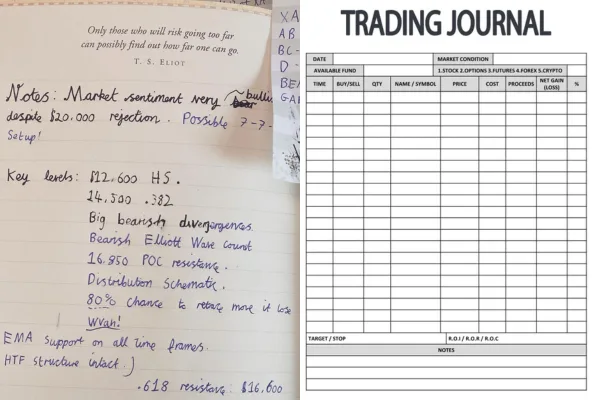 Only those who will risk going too far
can possibly find out how far one can go.
T. S. ELIOT
XA
AB
BC-
D -
BEA
GA
Notes: Market sentiment very bulli
despite $20,000 rejection. Possible 7-7-
Setup!
Key levels: $12,600 HS.
14,500 .382
Big bearish divergences.
Bearish Elliott Wave count
16,850 POC resistance.
Distribution Schematic.
80% chance to retrace move it lose
WVAH!
EMA support on all time frames.
HTF structure intact.
.618 resistance: $16,600
TRADING JOURNAL
DATE MARKET CONDITION
AVAILABLE FUND 1.STOCK 2.OPTIONS 3.FUTURES 4.FOREX 5.CRYPTO
TIME BUY/SELL QTY NAME / SYMBOL PRICE COST PROCEEDS NET GAIN (LOSS) %
TARGET / STOP R.O.I / R.O.R / R.O.C
NOTES